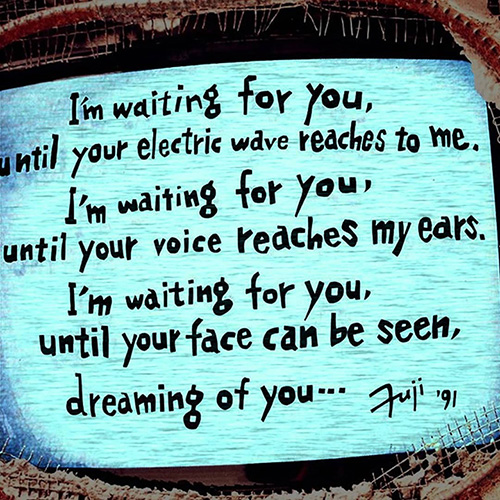 I'm waiting for you,
until your electric wave reaches to me.
I'm waiting for you,
until your voice reaches my ears.
I'm waiting for you,
until your face can be seen,
dreaming of you... Fuji '91